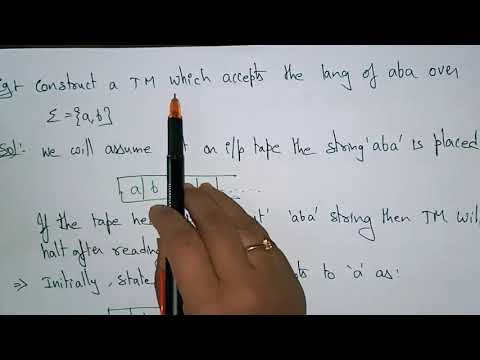 Eg:- Construct a TM which accepts the lang of aba over
Σ = {a,b}
Sol:- we will assume on i/p tape the string 'aba' is placed
a b
If the tape he 'aba' string then TM will
halt after reading
⇒ Initially, state to 'a' as: